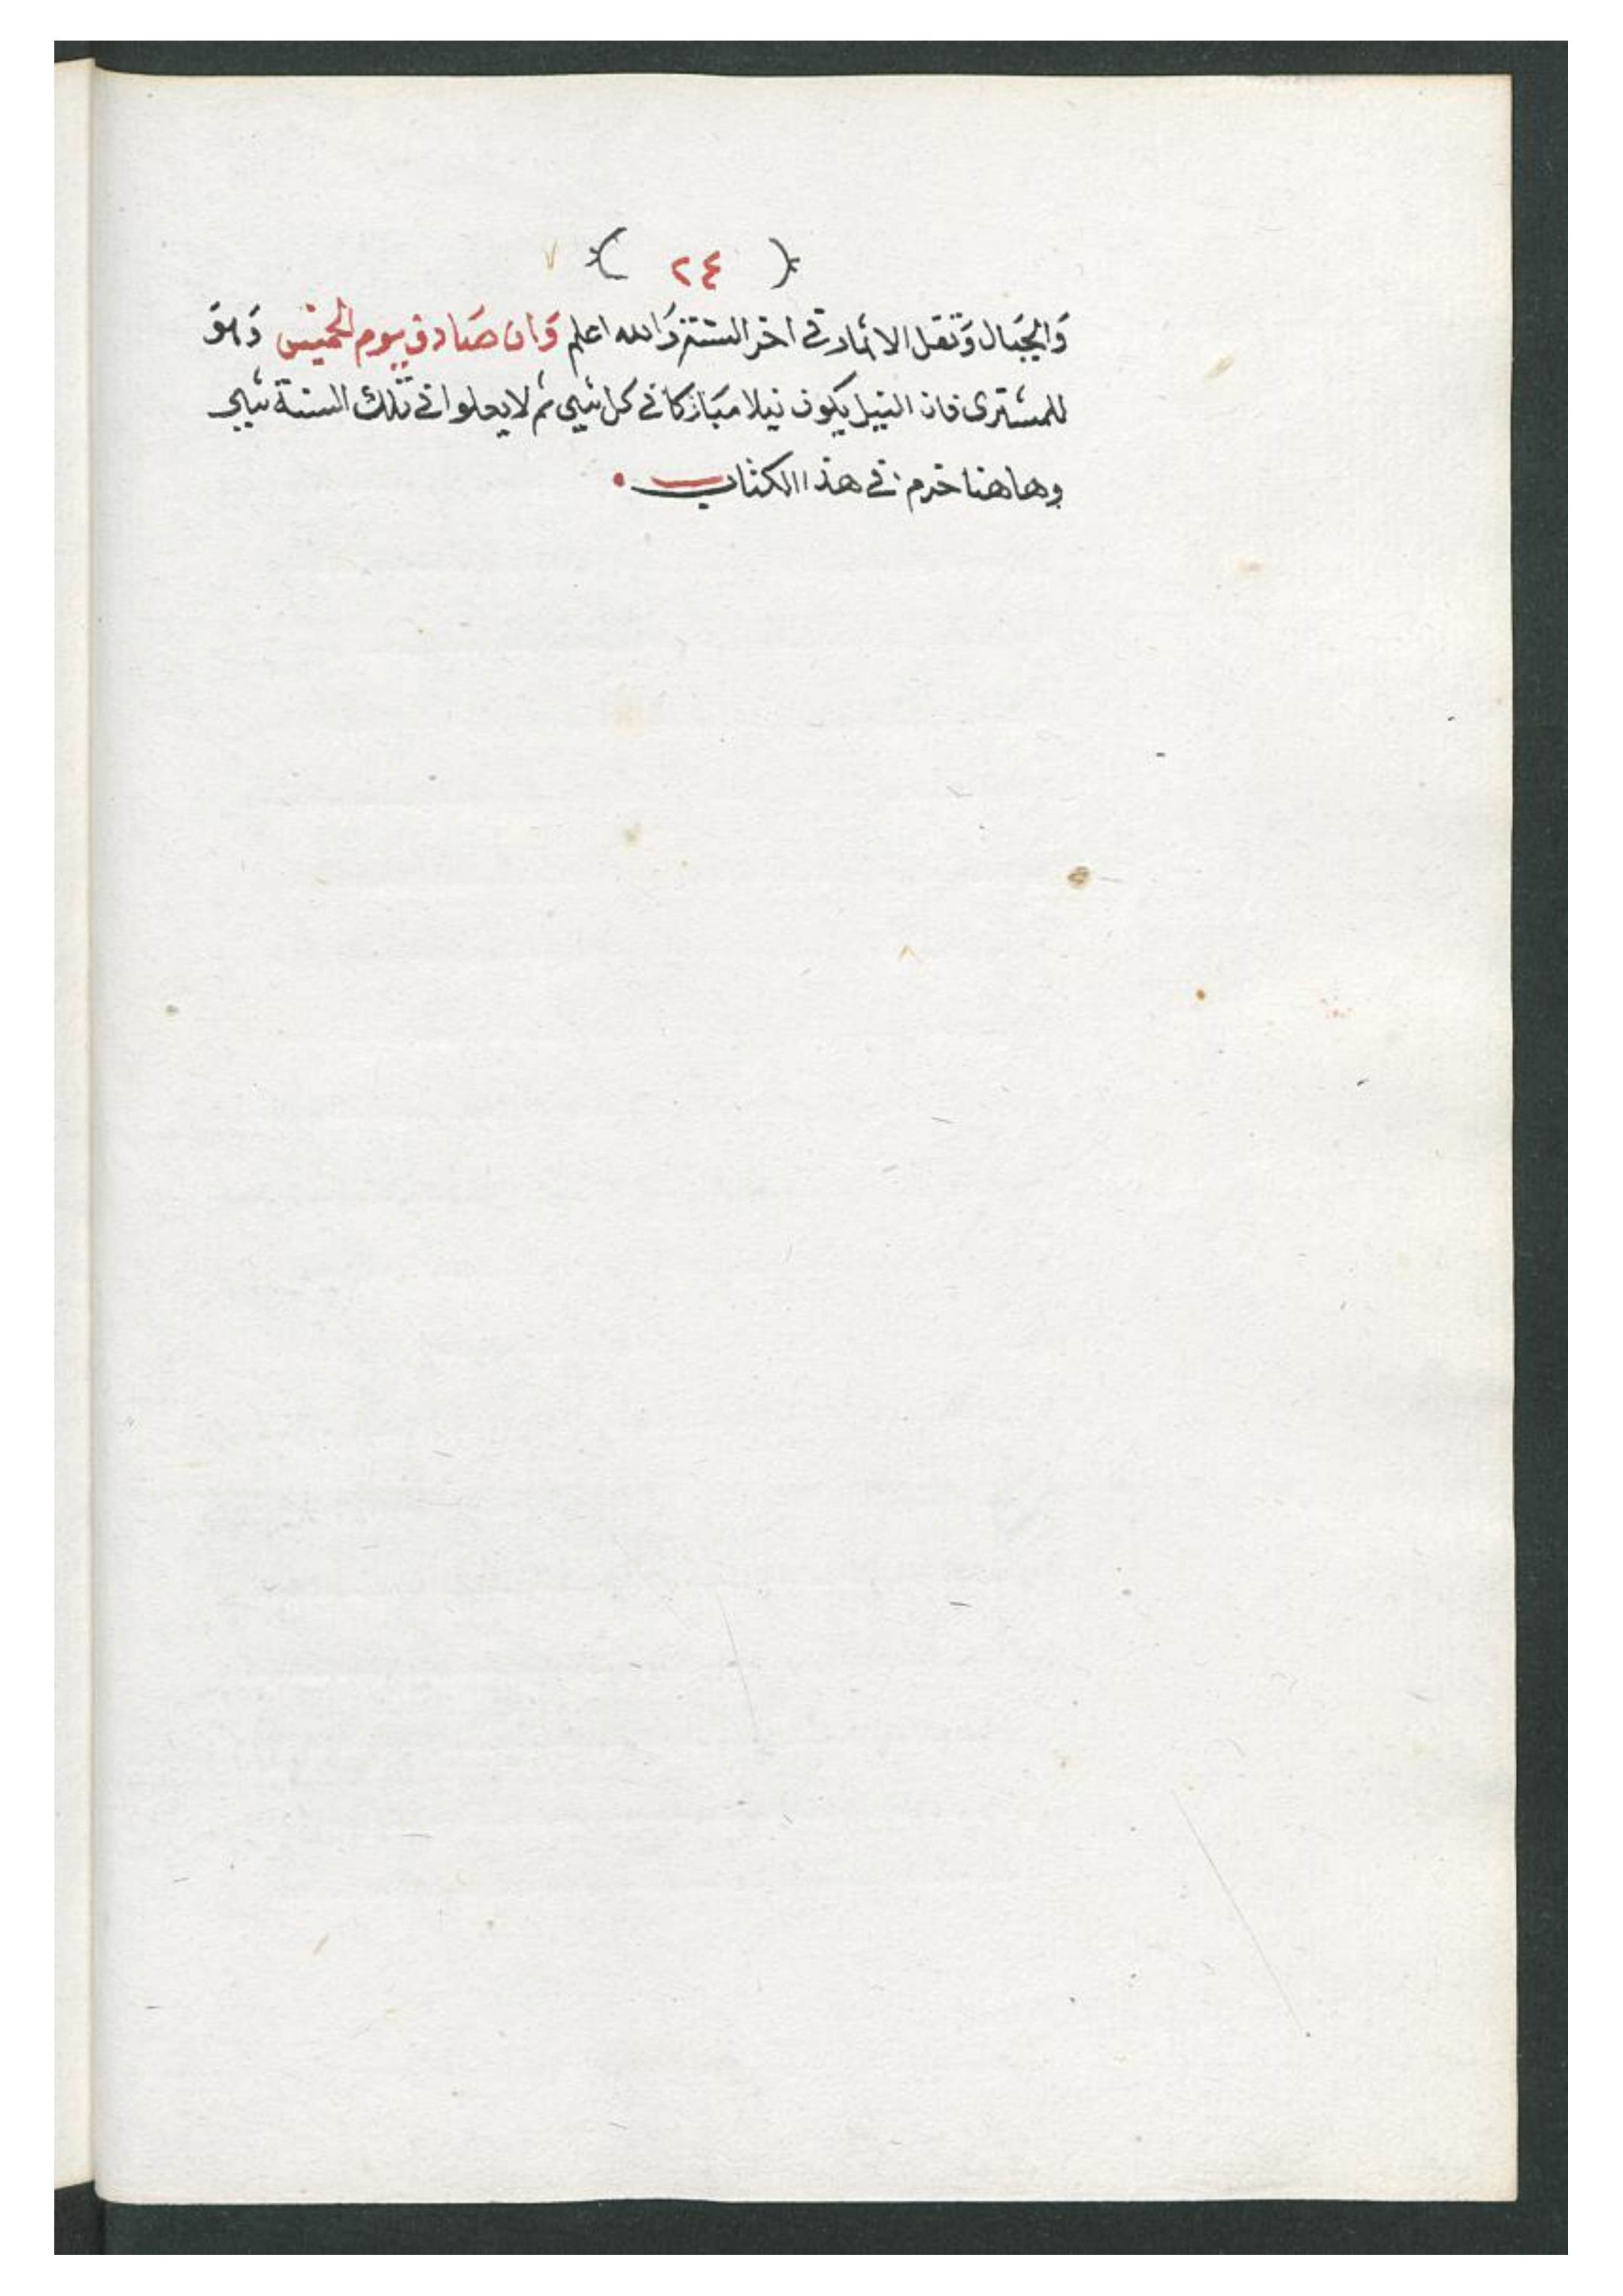 ( ٢٤ )
وَالجبَال وَتقل الاثمار في اخر السنة وَالله اعلم وَان صَادف يوم الخميس وَهوَ
للمشترى فان النيل يكون نيلا مبَاركا في كل شي ثم لا يعلوا في تلك السنة شي
وهاهنا خرم في هذا الكتاب